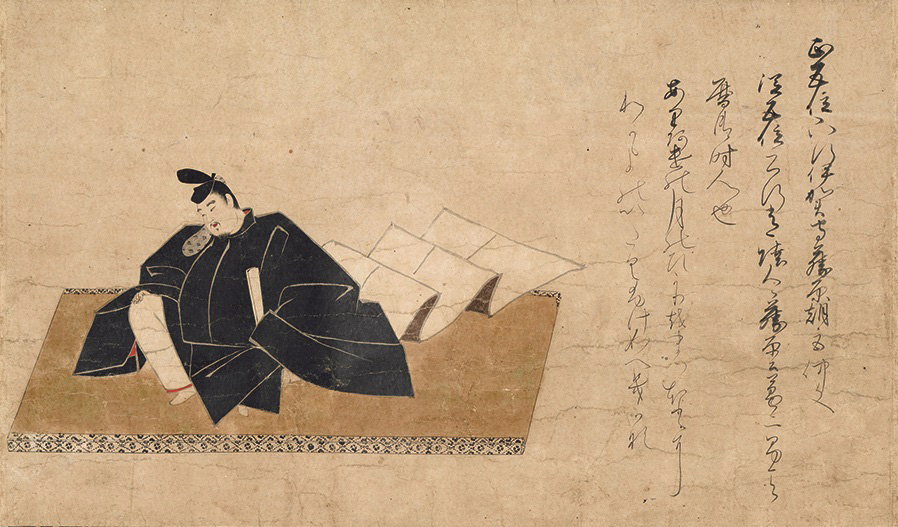 正五位下行伊賀守藤原朝臣仲文
従五位下行 藤原公葛一男
御時人也
ありあけの月のひかりをまつほとに
わかよのいたくふけにけるかな